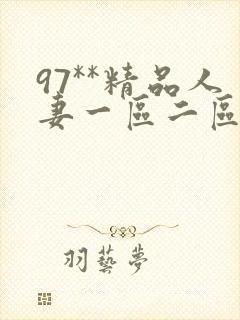 97**精品人
妻一區二區
羽藝夢